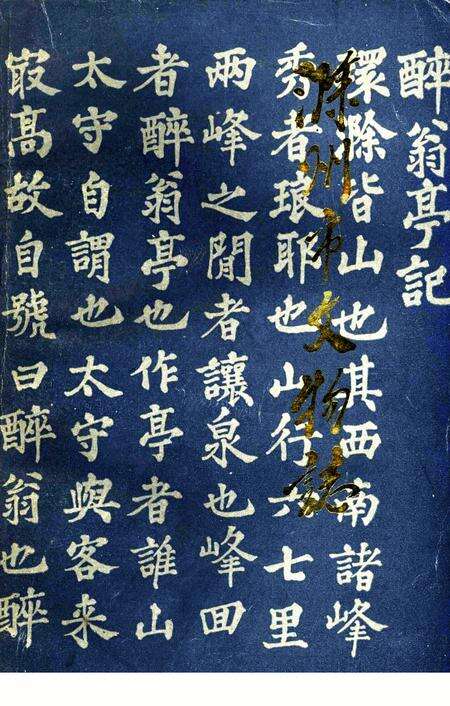 滁州市文物誌
醉翁亭記
環滁皆山也其西南諸峰
秀者琅耶也山行六七里
兩峰之閒者讓泉也峰回
者醉翁亭也作亭者誰山
太守自謂也太守與客来
㝡高故自號曰醉翁也醉